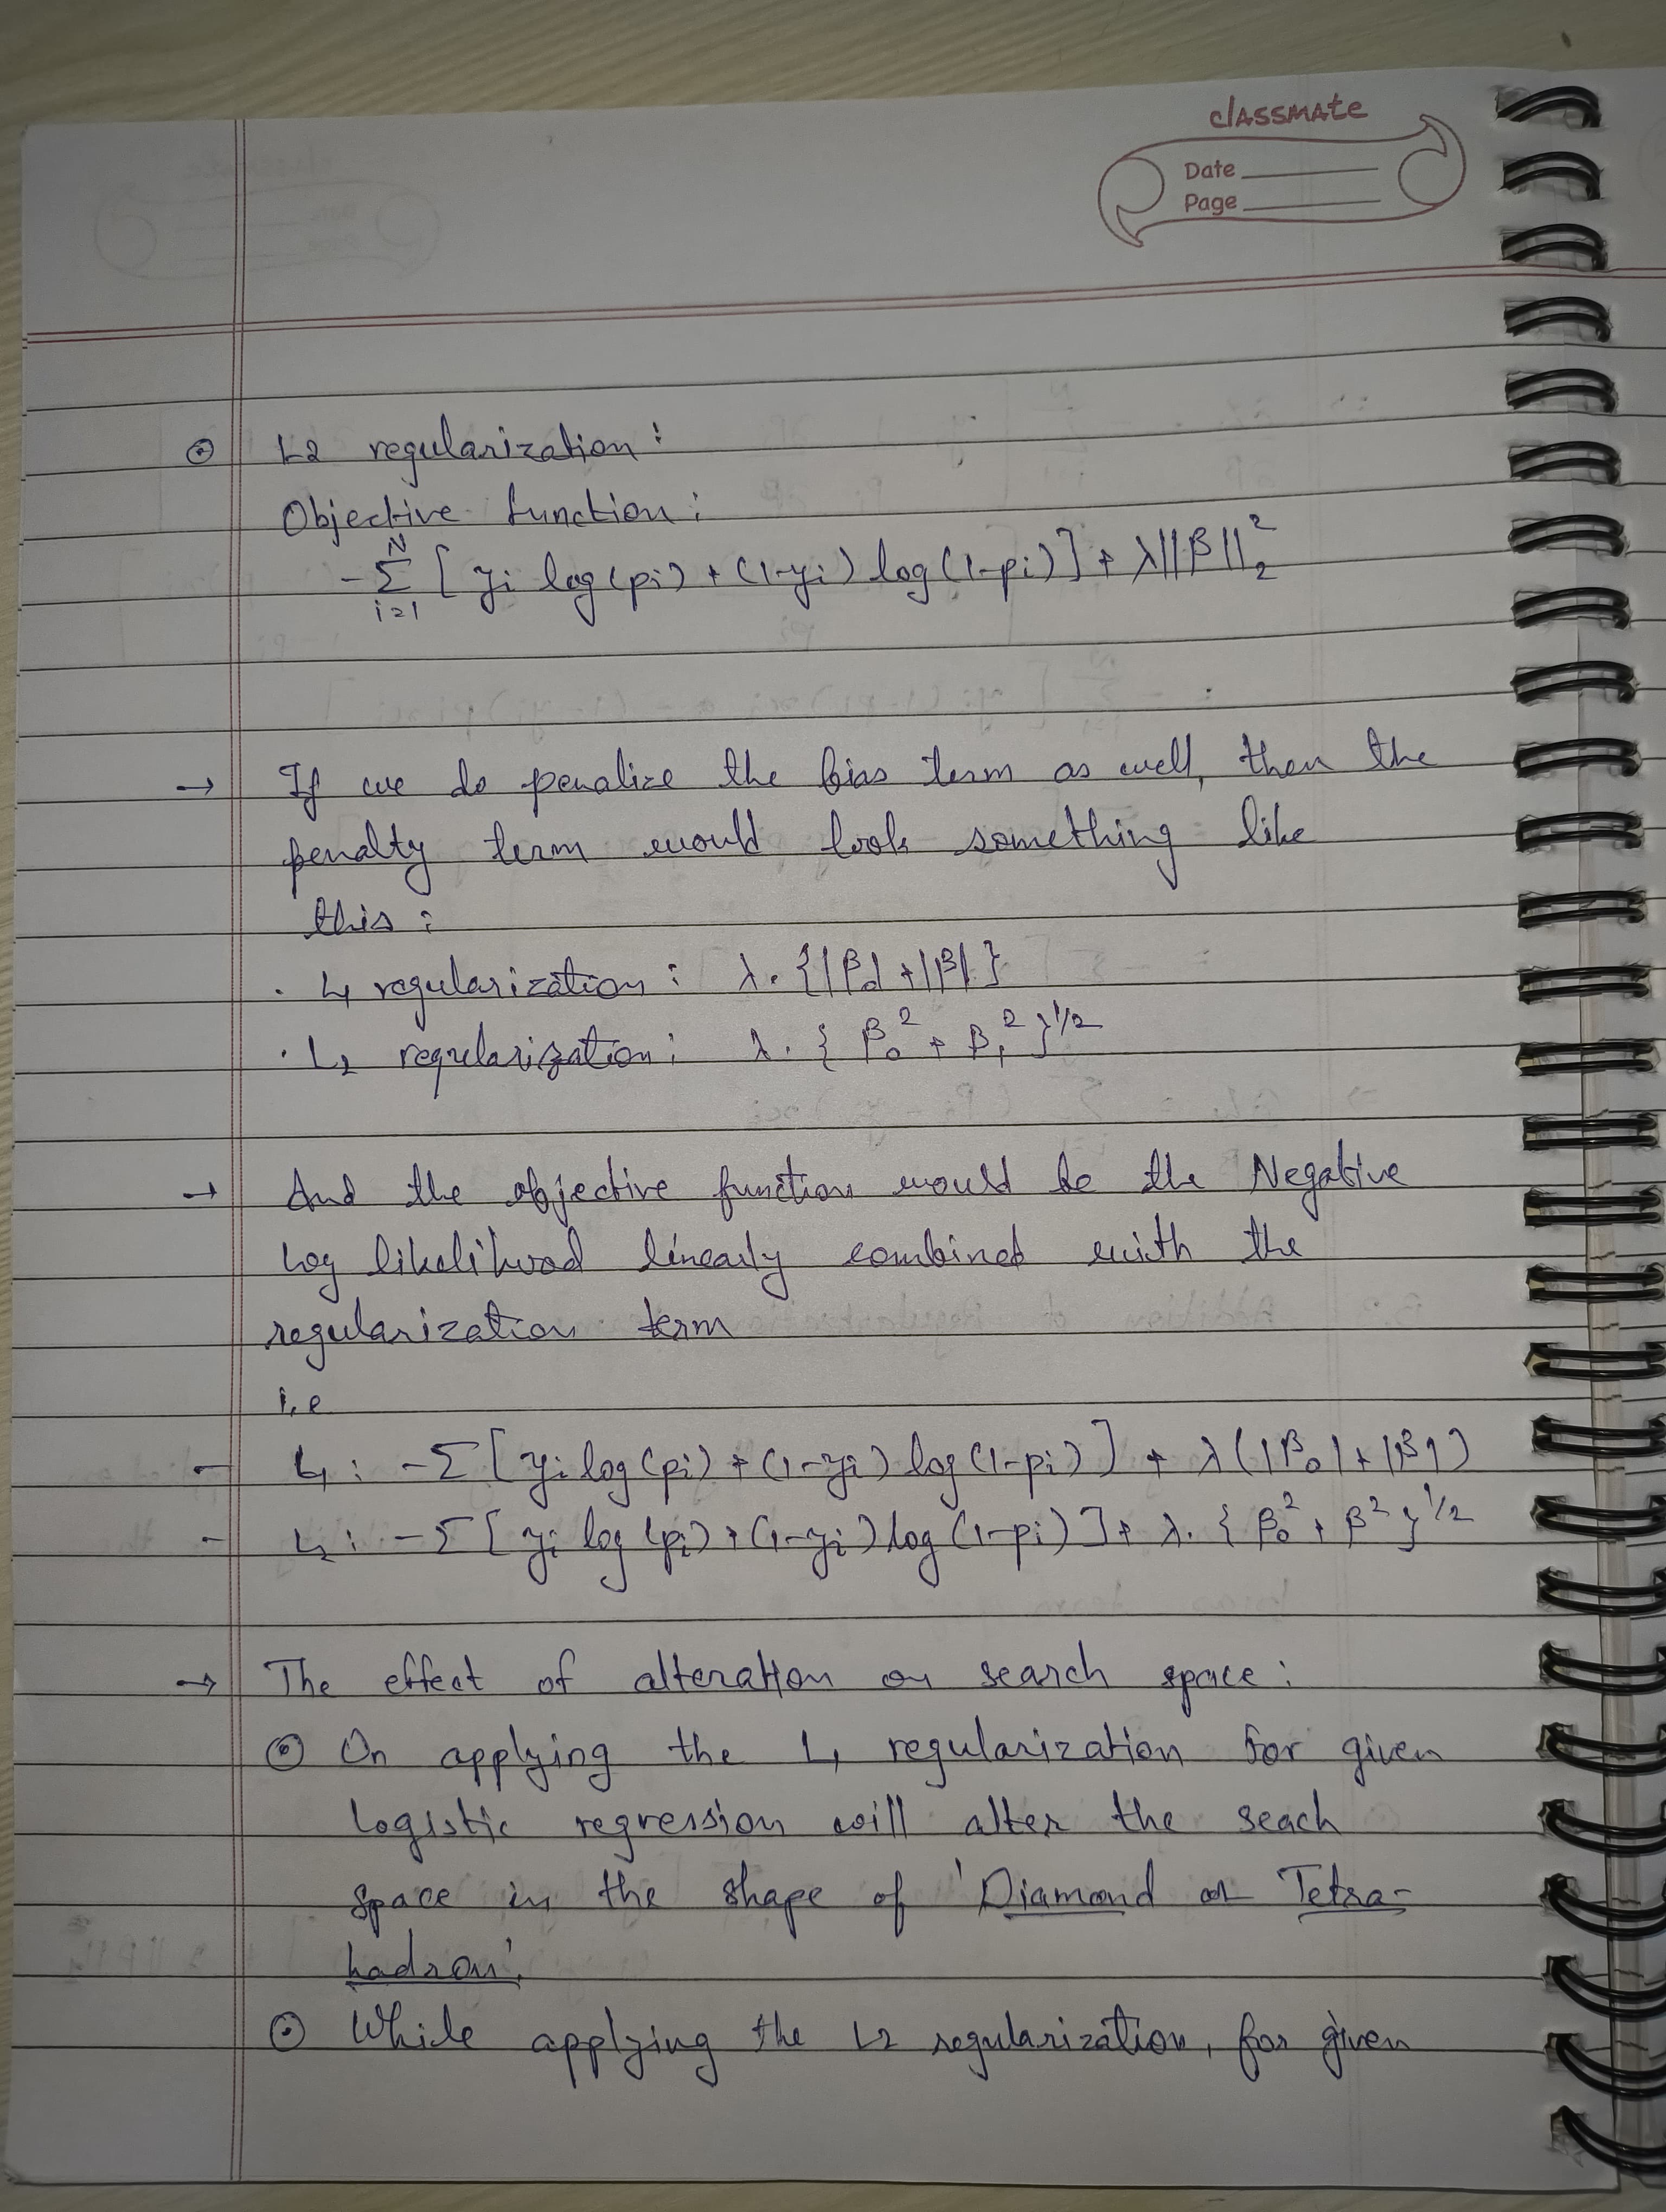 classmate
Date
Page
⊙ L2 regularization:
Objective function:
-∑_{i=1}^{N} [yi log(pi) + (1-yi) log(1-pi)] + λ||β||_2^2
→ If we do penalize the bias term as well, then the
penalty term would look something like
this:
· L1 regularization: λ.{|β0|+|β|}
· L2 regularization: λ.{β0^2 + β1^2}^1/2
→ And the objective function would be the Negative
Log likelihood linearly combined with the
regularization term
i.e
- L1: -∑[yi log(pi) + (1-yi) log(1-pi)] + λ(|β0|+|β|)
- L2: -∑[yi log(pi) + (1-yi) log(1-pi)] + λ.{β0^2 + β^2}^1/2
→ The effect of alteration on search space:
⊙ On applying the L1 regularization for given
Logistic regression will alter the seach
space in the shape of 'Diamond or Tetra-
hadron'.
⊙ While applying the L2 regularization, for given